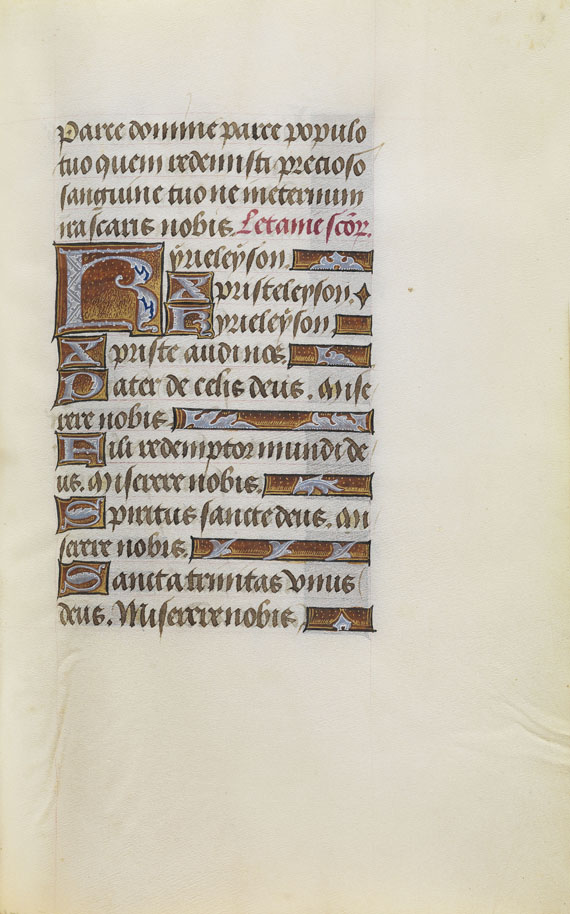 Parce domine parce populo
tuo quem redemisti precioso
sanguine tuo ne ineternum
irascaris nobis. Letanie scōꝝ.
Kyrieleyson.
Xpristeleyson.
Kyrieleyson
Xpriste audi nos.
Pater de celis deus. Mise
rere nobis.
Fili redemptor mundi de
us. Miserere nobis.
Spiritus sancte deus. Mi
serere nobis.
Sancta trinitas vnus
deus. Miserere nobis